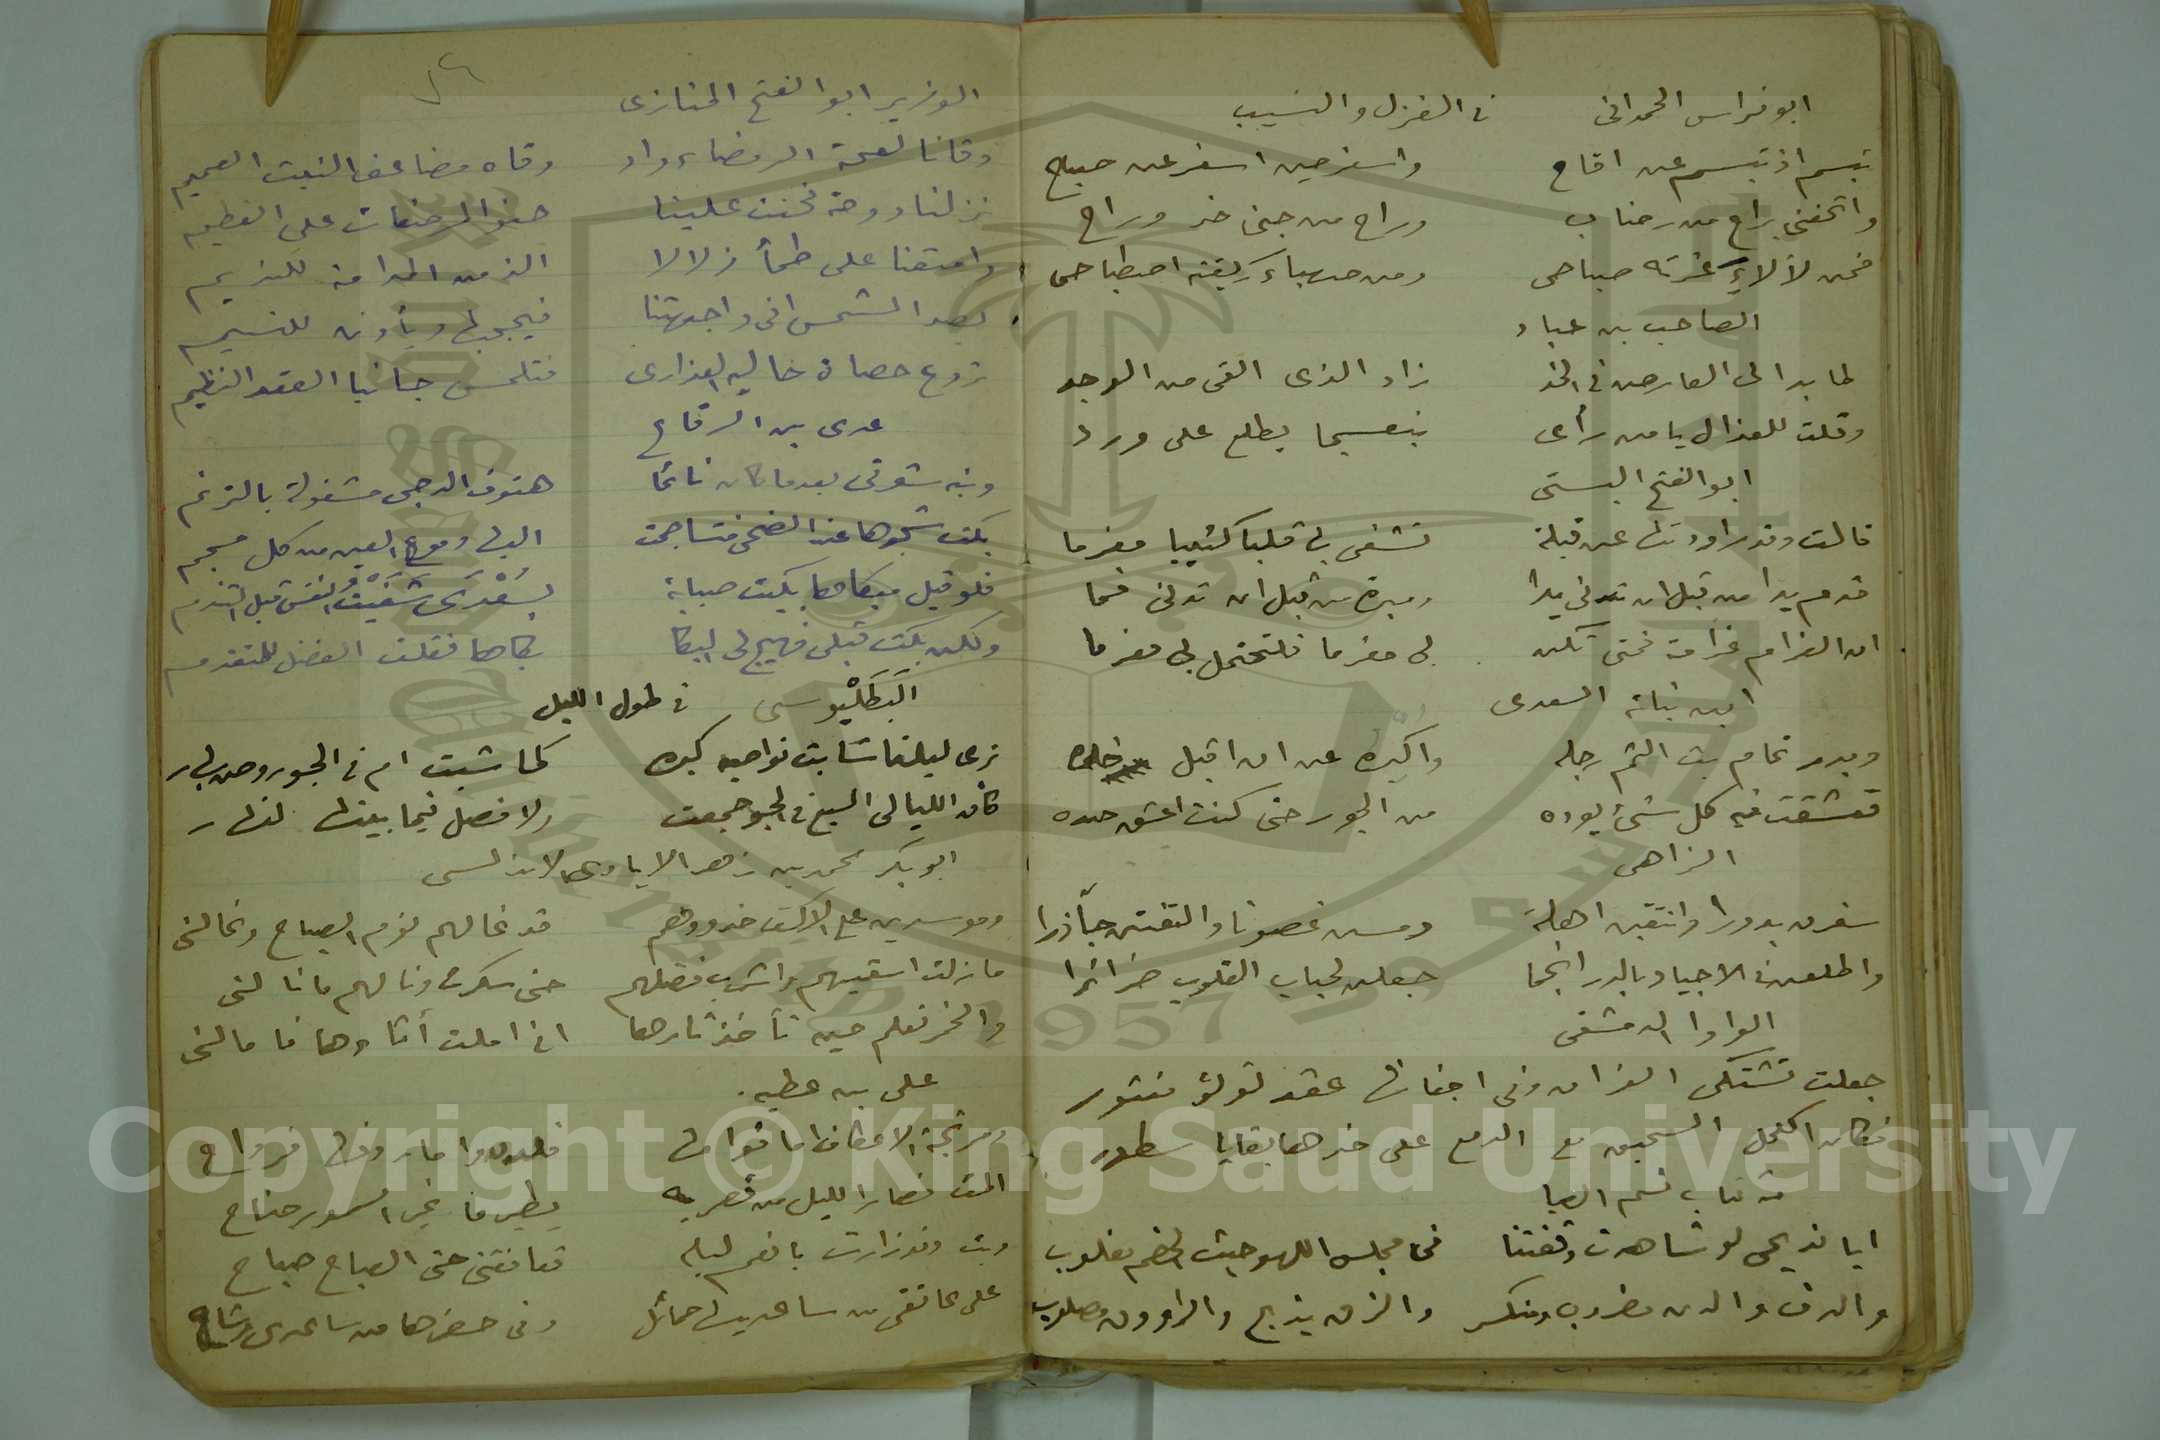 ابو فراس الحمدانى في الغزل والنسيب
تبسم اذ تبسم عن اقاح واسفر حين اسفر عن صباح
واتحفنى براح من رضاب وراح من جنى خد وراح
فمن لألاء غرته صباحى ومن صهباء ريقته اصطباحى
الصاحب بن عباد
لما بدا لى العارض في الخد زاد الذى القى من الوجد
وقلت للعذال يا من رأى بنفسجا يطلع على ورد
ابو الفتح البستى
قالت وقد راودتها عن قبلة تشفى بها قلبا كئيبا مغرما
قدم يدا من قبل ان تدنى يدا وميرة من قبل ان تدنى فما
ان الغرام غرامة فمتى تكن بى مغرما فلتحتمل لى مغرما
ابن نباته السعدى
وبدر تمام بت الثم رجله واكبره عن ان اقبل خده
تعشقت فيه كل شئ يوده من الجور حتى كنت اعشق صده
الزاهى
سفرن بدورا وانتقبن اهلة ومسن غصونا والتفتن جآذرا
واطلعن في الاجياد بالدر انجما جعلن لحبات القلوب ضرائرا
الواوا الدمشقى
جعلت تشتكى الفراق وفى اجفانها عقد لؤلؤ منثور
فكان الكحل السحيق مع الدمع على خدها بقايا سطور
من كتاب نسيم الصبا
ايا نديمى لو شاهدت وقفتنا فى مجلس اللهو حيث الخصم مغلوب
والدف والدن مضروب ومنكسر والزق يذبح والراووق مصلوب
الوزير ابو الفتح المنازى
وقانا لفحة الرمضاء واد وقاه مضاعف النبت العميم
نزلنا دوحة فحنت علينا حنو المرضعات على الفطيم
وارشفنا على ظمأ زلالا الذ من المدامة للنديم
يصد الشمس انى واجهتنا فيحجبها ويأذن للنسيم
تروع حصاه حاليه العذارى فتلمس جانبا العقد النظيم
عدى بن الرقاع
ونبه شوقى بعدما كان نائما هتوف الدجى مشغولة بالترنم
بكت شجوها عند الضحى فتساجمت اليها دموع العين من كل مسجم
فلو قبل مبكاها بكيت صبابة بسُعْدى شَفَيْتُ النفس قبل التندم
ولكن بكت قبلى فهيج لى البكا بكاها فقلت الفضل للمتقدم
البَطَلْيوسى في طول الليل
ترى ليلنا شابت نواصيه كبره كما شبت ام في الجو روض بهار
كأن الليالى السبع في الجو جمعت ولا فصل فيما بينها لنهار
ابو بكر محمد بن زهر الايادى الاندلسى
وموسدين على الاكف خدودهم قد غالهم نوم الصباح وغالنى
ما زلت اسقيهم واشرب فضلهم حتى سكرت ونالهم ما نالنى
والخمر تعلم حين تأخذ ثارها انى املت اناءها فامالنى
على بن عطيه.
ومرتجة الاعطاف اما قوامها فلدن واما ردفها فرداح
المت فصار الليل من قصر به يطير وما غير السرور جناح
وبت وقد زارت بانعم ليلة تعانقنى حتى الصباح صباح
على عاتقى من ساعديها حمائل وفى خصرها من ساعدى وشاح